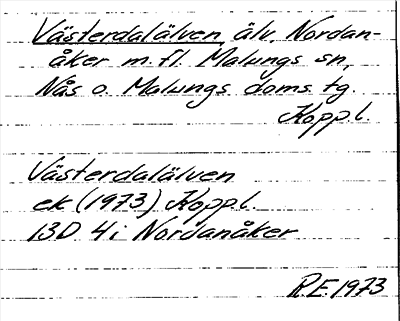 Västerdalälven, älv, Nordan-
åker m. fl. Malungs sn,
Nås o. Malungs doms. tg.
Kopp.l.
Västerdalälven
ek (1973) Kopp.l.
13D 4i Nordanåker
R.E. 1973